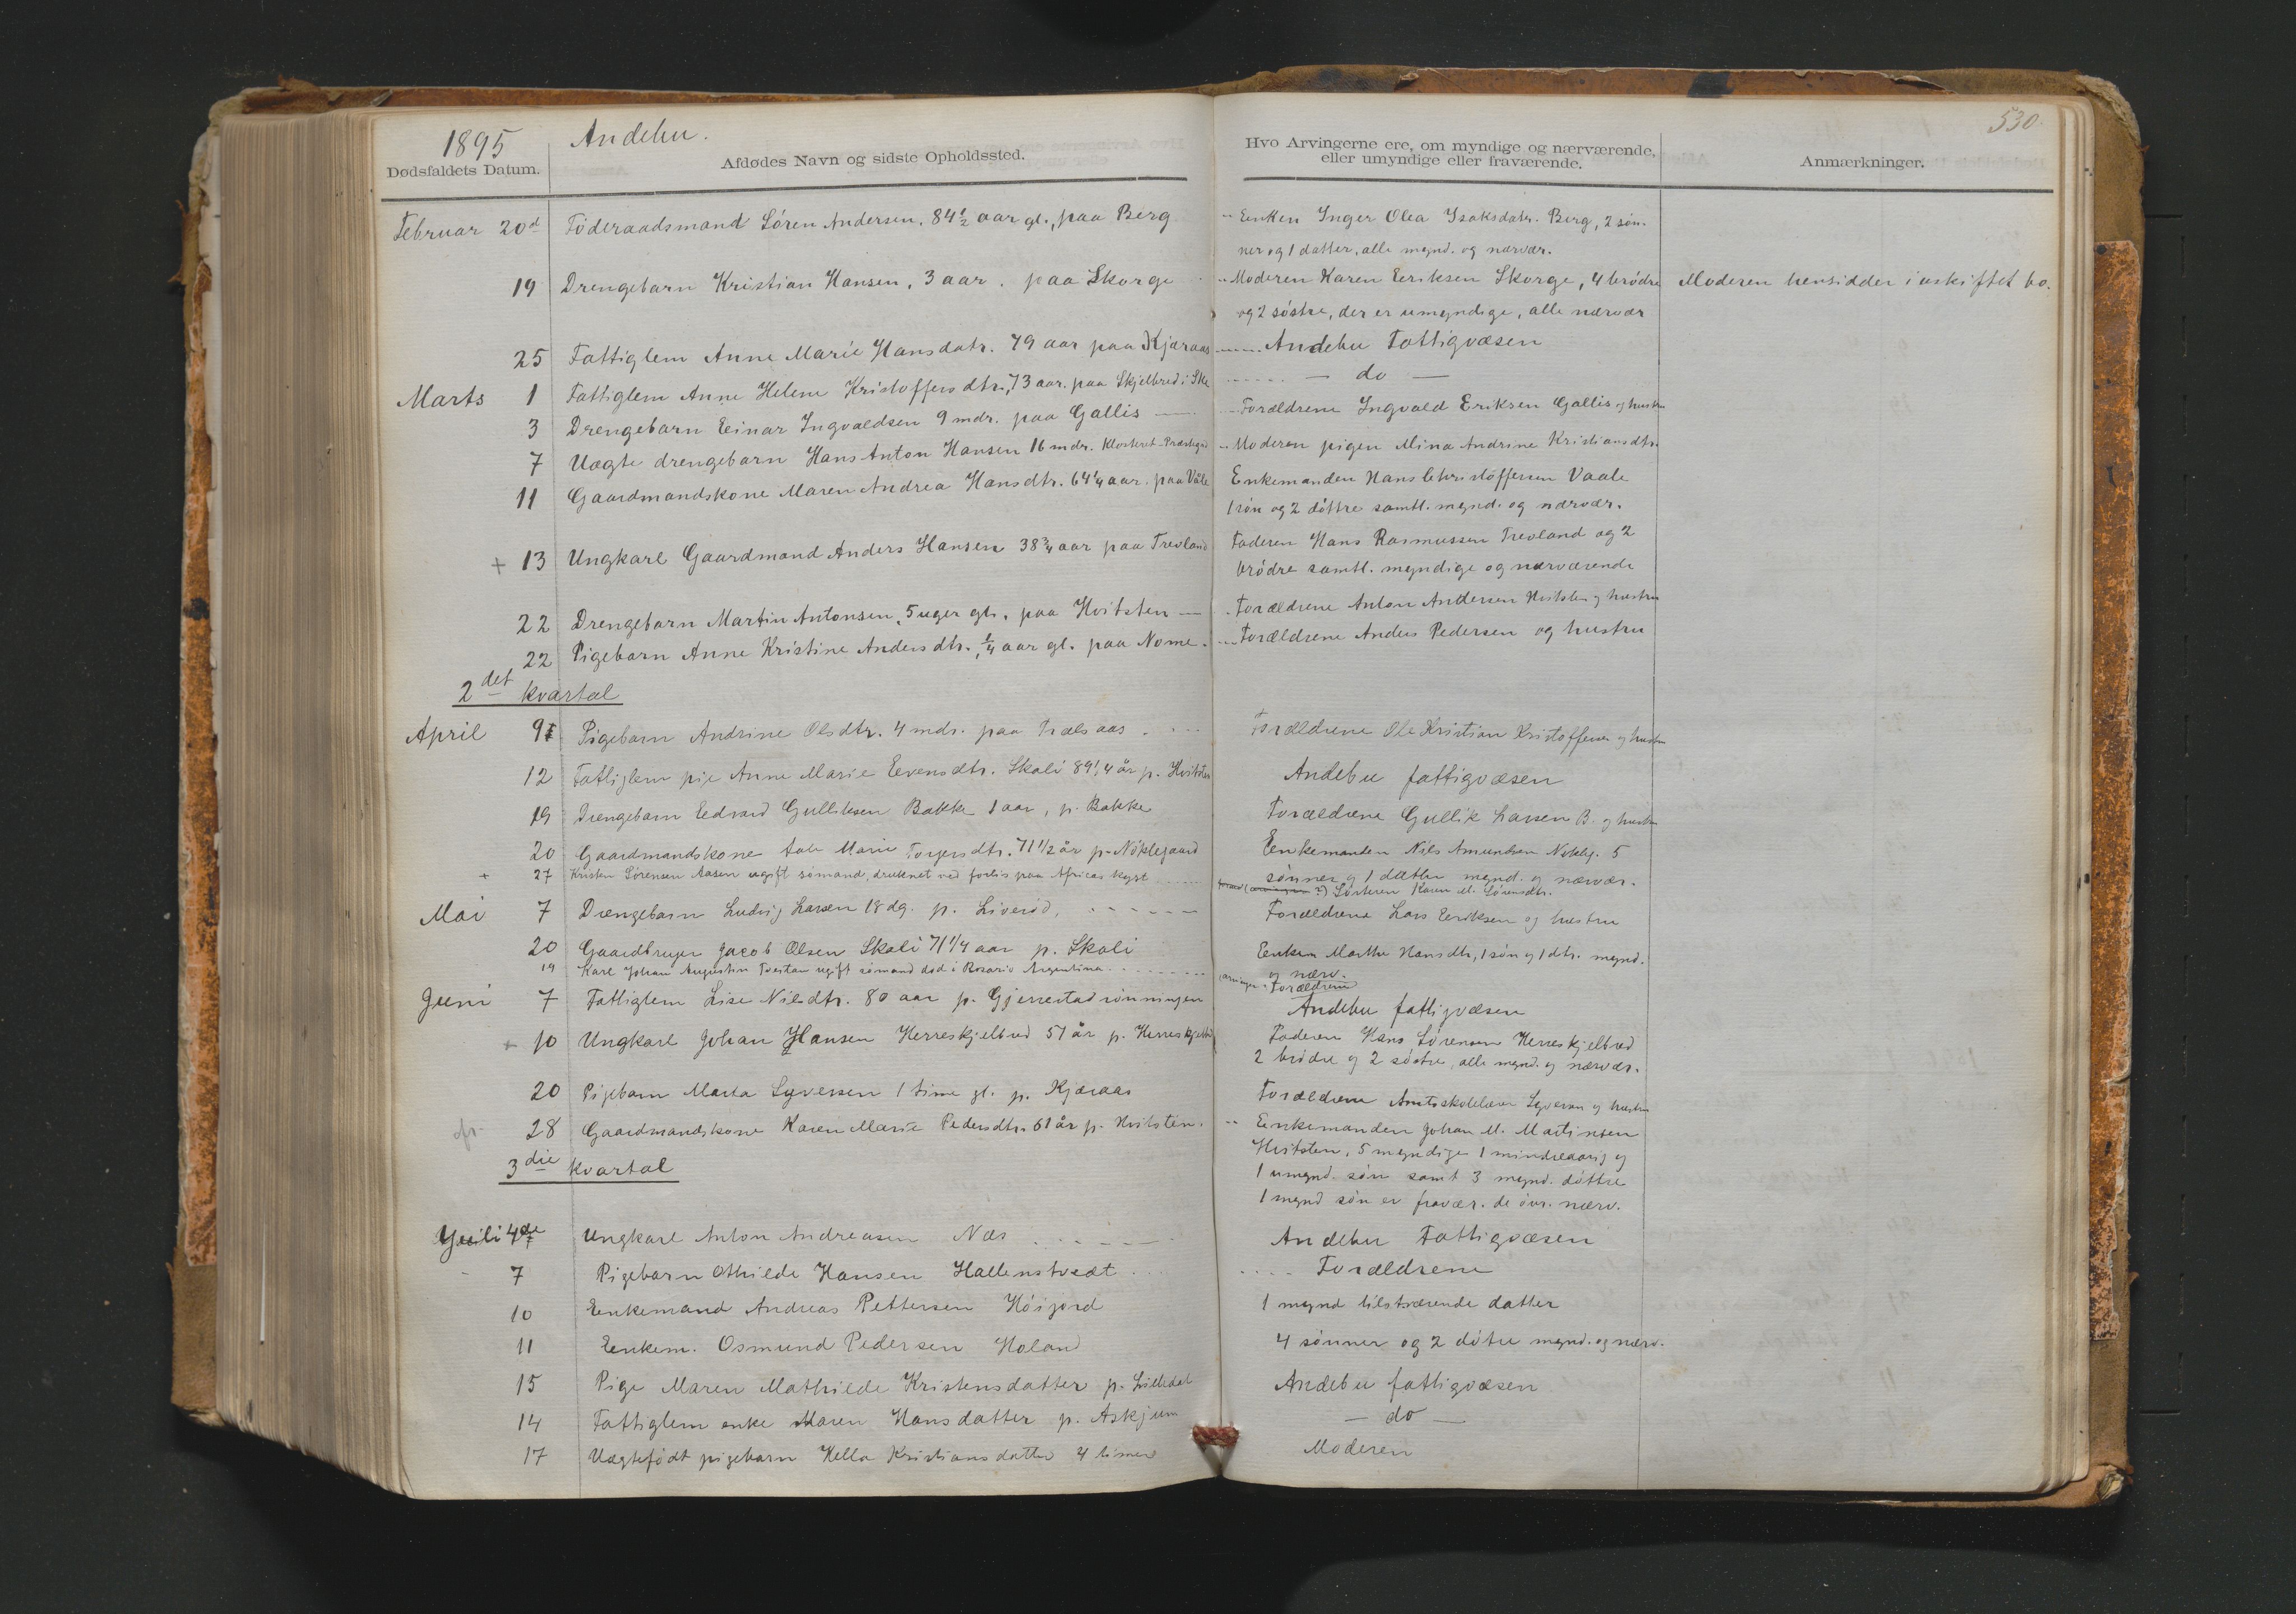 1895 Andebu.
530.
Dødsfaldets Datum. Afdødes Navn og sidste Opholdssted. Hvo Arvingerne ere, om myndige og nærværende, eller umyndige eller fraværende. Anmærkninger.
Februar 20d Föderaadsmand Sören Andersen, 84 1/2 aar gl., paa Berg Enken Inger Olea Isaksdatr. Berg, 2 søn-
ner og 1 datter, alle mynd. og nærvær.
19 Drengebarn Kristian Hansen, 3 aar. paa Skorge Moderen Karen Eeriksen Skorge, 4 brødre Moderen hensidder i uskiftet bo.
og 2 søstre, der er umyndige, alle nærvær
25 Fattiglem Anne Marie Hansdatr. 79 aar paa Kjæraas Andebu Fattigvæsen
Marts 1 Fattiglem Anne Helene Kristoffersdtr, 73 aar. paa Skjelbred i Ske — do —
3 Drengebarn Eeinar Ingvaldsen 9 mdr. paa Gallis — Forældrene Ingvald Eriksen Gallis og hustru
7 Uægte drengebarn Hans Anton Hansen 16 mdr. Klosteret Moderen pigen Mina Andrine Kristiansdtr.
11 Gaardmandskone Maren Andrea Hansdtr. 64 1/4 aar. paa Våle Enkemanden Hans Christoffersen Vaale
1 søn og 2 døttre samtl. mynd. og nærvær.
+ 13 Ungkarl Gaardmand Anders Hansen 38 3/4 aar paa Trevland Faderen Hans Rasmussen Trevland og 2
brødre samtl. myndige og nærværende
22 Drengebarn Martin Antonsen, 5 uger gl., paa Hvitsten — Forældrene Anton Andersen Hvitsten og hustru
22 Pigebarn Anne Kristine Andersdtr. 1/4 aar gl. paa Nome. Forældrene Anders Pedersen og hustru
2det kvartal
April 9 Pigebarn Andrine Olsdtr. 4 mdr. paa Trælsaas Forældrene Ole Kristian Kristoffersen og hustru
12 Fattiglem pige Anne Marie Eevensdtr. Skali 89 1/4 år p. Hvitsten Andebu fattigvæsen
19 Drengebarn Eedvard Gulliksen Bakke 1 aar, p. Bakke Forældrene Gullik Larsen B. og hustru
20 Gaardmandskone Marie 71 1/2 år p. Nöklegaard Eenkemanden Nils Amundsen Nøkleg. 5
sønner og 1 datter mynd. og nærvær.
+ 27 Kristen Sørensen Aasen ugift sömand, druknet ved forlis paa Africas kyst Søsteren Karen M. Sörensdtr.
Mai 7 Drengebarn Ludvig Larsen 18 dg. p. Liveröd, Forældrene Lars Eeriksen og hustru
20 Gaardbruger Jacob Olsen Skali 71 1/4 aar p. Skali Eenken Marthe Hansdtr, 1 søn og 1 dtr. mynd.
og nærv.
19 Karl Johan Augustin Tveitan ugift sömand död i Rosario Argentina arvinger: Forældrene
Juni 7 Fattiglem Lise Nilsdtr. 80 aar p. Gjerrestadrönningen Andebu fattigvæsen
10 Ungkarl Johan Hansen Herreskjelbred 51 år p. Herreskjelbred Faderen Hans Sørensen Herreskjelbred
2 brødre og 2 søstre, alle mynd. og nærvær.
20 Pigebarn Marta Syversen 1 time gl. p. Kjæraas Forældrene Amtsskolelærer Syversen og hustru
28 Gaardmandskone Karen Marie Pedersdtr. 61 år p. Hvitsten. Eenkemanden Johan M. Martinsen
Hvitsten, 5 myndige 1 mindreaarig og
1 umynd. søn samt 3 mynd. døttre
1 mynd søn er fravær. de øvr. nærv.
3die kvartal
Juli 4de Ungkarl Anton Andreasen Næs Andebu Fattigvæsen
7 Pigebarn Othilde Hansen Hallenstvedt Forældrene
10 Eenkemand Andreas Pettersen Höijord 1 mynd tilstværende datter
11 Eenkem. Osmund Pedersen Holand 4 sønner og 2 døtre mynd. og nærv.
15 Pige Maren Mathilde Kristensdatter p. Lilledal Andebu fattigvæsen
14 Fattiglem enke Maren Hansdatter p. Askjum — do —
17 Uægtefødt pigebarn Hella Kristiansdatter 4 timer Moderen